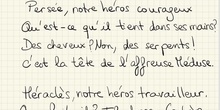 Persée, notre héros courageux
Qu'est-ce qu'il tient dans ses mains?
Des cheveux? Non, des serpents!
c'est la tête de l'affreuse Méduse.
Héraclès, notre héros travailleur.